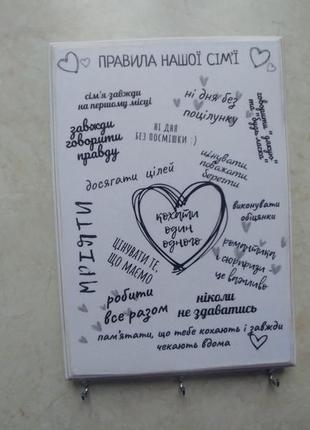 ПРАВИЛА НАШОЇ СІМ'Ї
сім'я завжди
на першому місці
ні дня без
поцілунку
говорити "дякую"
та "будь-ласка"
завжди
говорити
правду
НІ ДНЯ
БЕЗ ПОСМІШКИ :)
цінувати,
поважати,
берегти
досягати цілей
МРІЯТИ
кохати
один
одного
виконувати
обіцянки
ЦІНУВАТИ ТЕ,
ЩО МАЄМО
романтика
і сюрпризи
це важливо
робити
все разом
ніколи
не здаватись
пам'ятати, що тебе кохають і завжди
чекають вдома